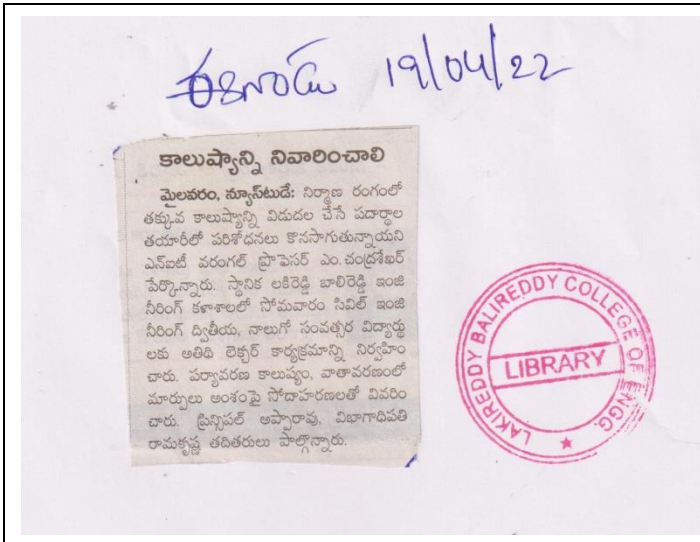 ఈనాడు 19/04/22
కాలుష్యాన్ని నివారించాలి
మైలవరం, న్యూస్‌టుడే: నిర్మాణ రంగంలో
తక్కువ కాలుష్యాన్ని విడుదల చేసే పదార్థాల
తయారీలో పరిశోధనలు కొనసాగుతున్నాయని
ఎన్ఐటీ వరంగల్ ప్రొఫెసర్ ఎం.చంద్రశేఖర్
పేర్కొన్నారు. స్థానిక లకిరెడ్డి బాలిరెడ్డి ఇంజి
నీరింగ్ కళాశాలలో సోమవారం సివిల్ ఇంజి
నీరింగ్ ద్వితీయ, నాలుగో సంవత్సర విద్యార్థు
లకు అతిథి లెక్చర్ కార్యక్రమాన్ని నిర్వహిం
చారు. పర్యావరణ కాలుష్యం, వాతావరణంలో
మార్పులు అంశంపై సోదాహరణలతో వివరిం
చారు. ప్రిన్సిపల్ అప్పారావు, విభాగాధిపతి
రామకృష్ణ తదితరులు పాల్గొన్నారు.
LAKIREDDY BALIREDDY COLLEGE OF ENGG.
LIBRARY